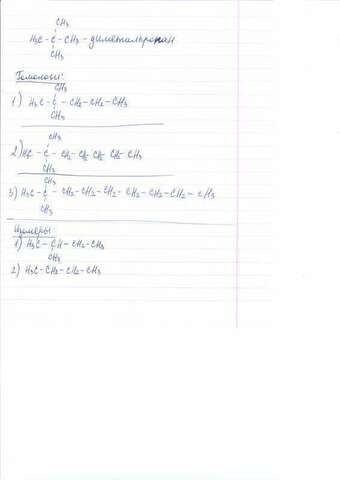 CH3
H3C - C - CH3 - диметилпропан
CH3
Гомологи:
CH3
1) H3C - C - CH2 - CH2 - CH3
CH3
CH3
2) H3C - C - CH2 - CH2 CH2 CH2 - CH3
CH3
CH3
3) H3C - C - CH2 - CH2 - CH2 - CH2 - CH2 - CH2 - CH3
CH3
Изомеры
1) H3C - CH - CH2 - CH3
CH3
2) H3C - CH2 - CH2 - CH3